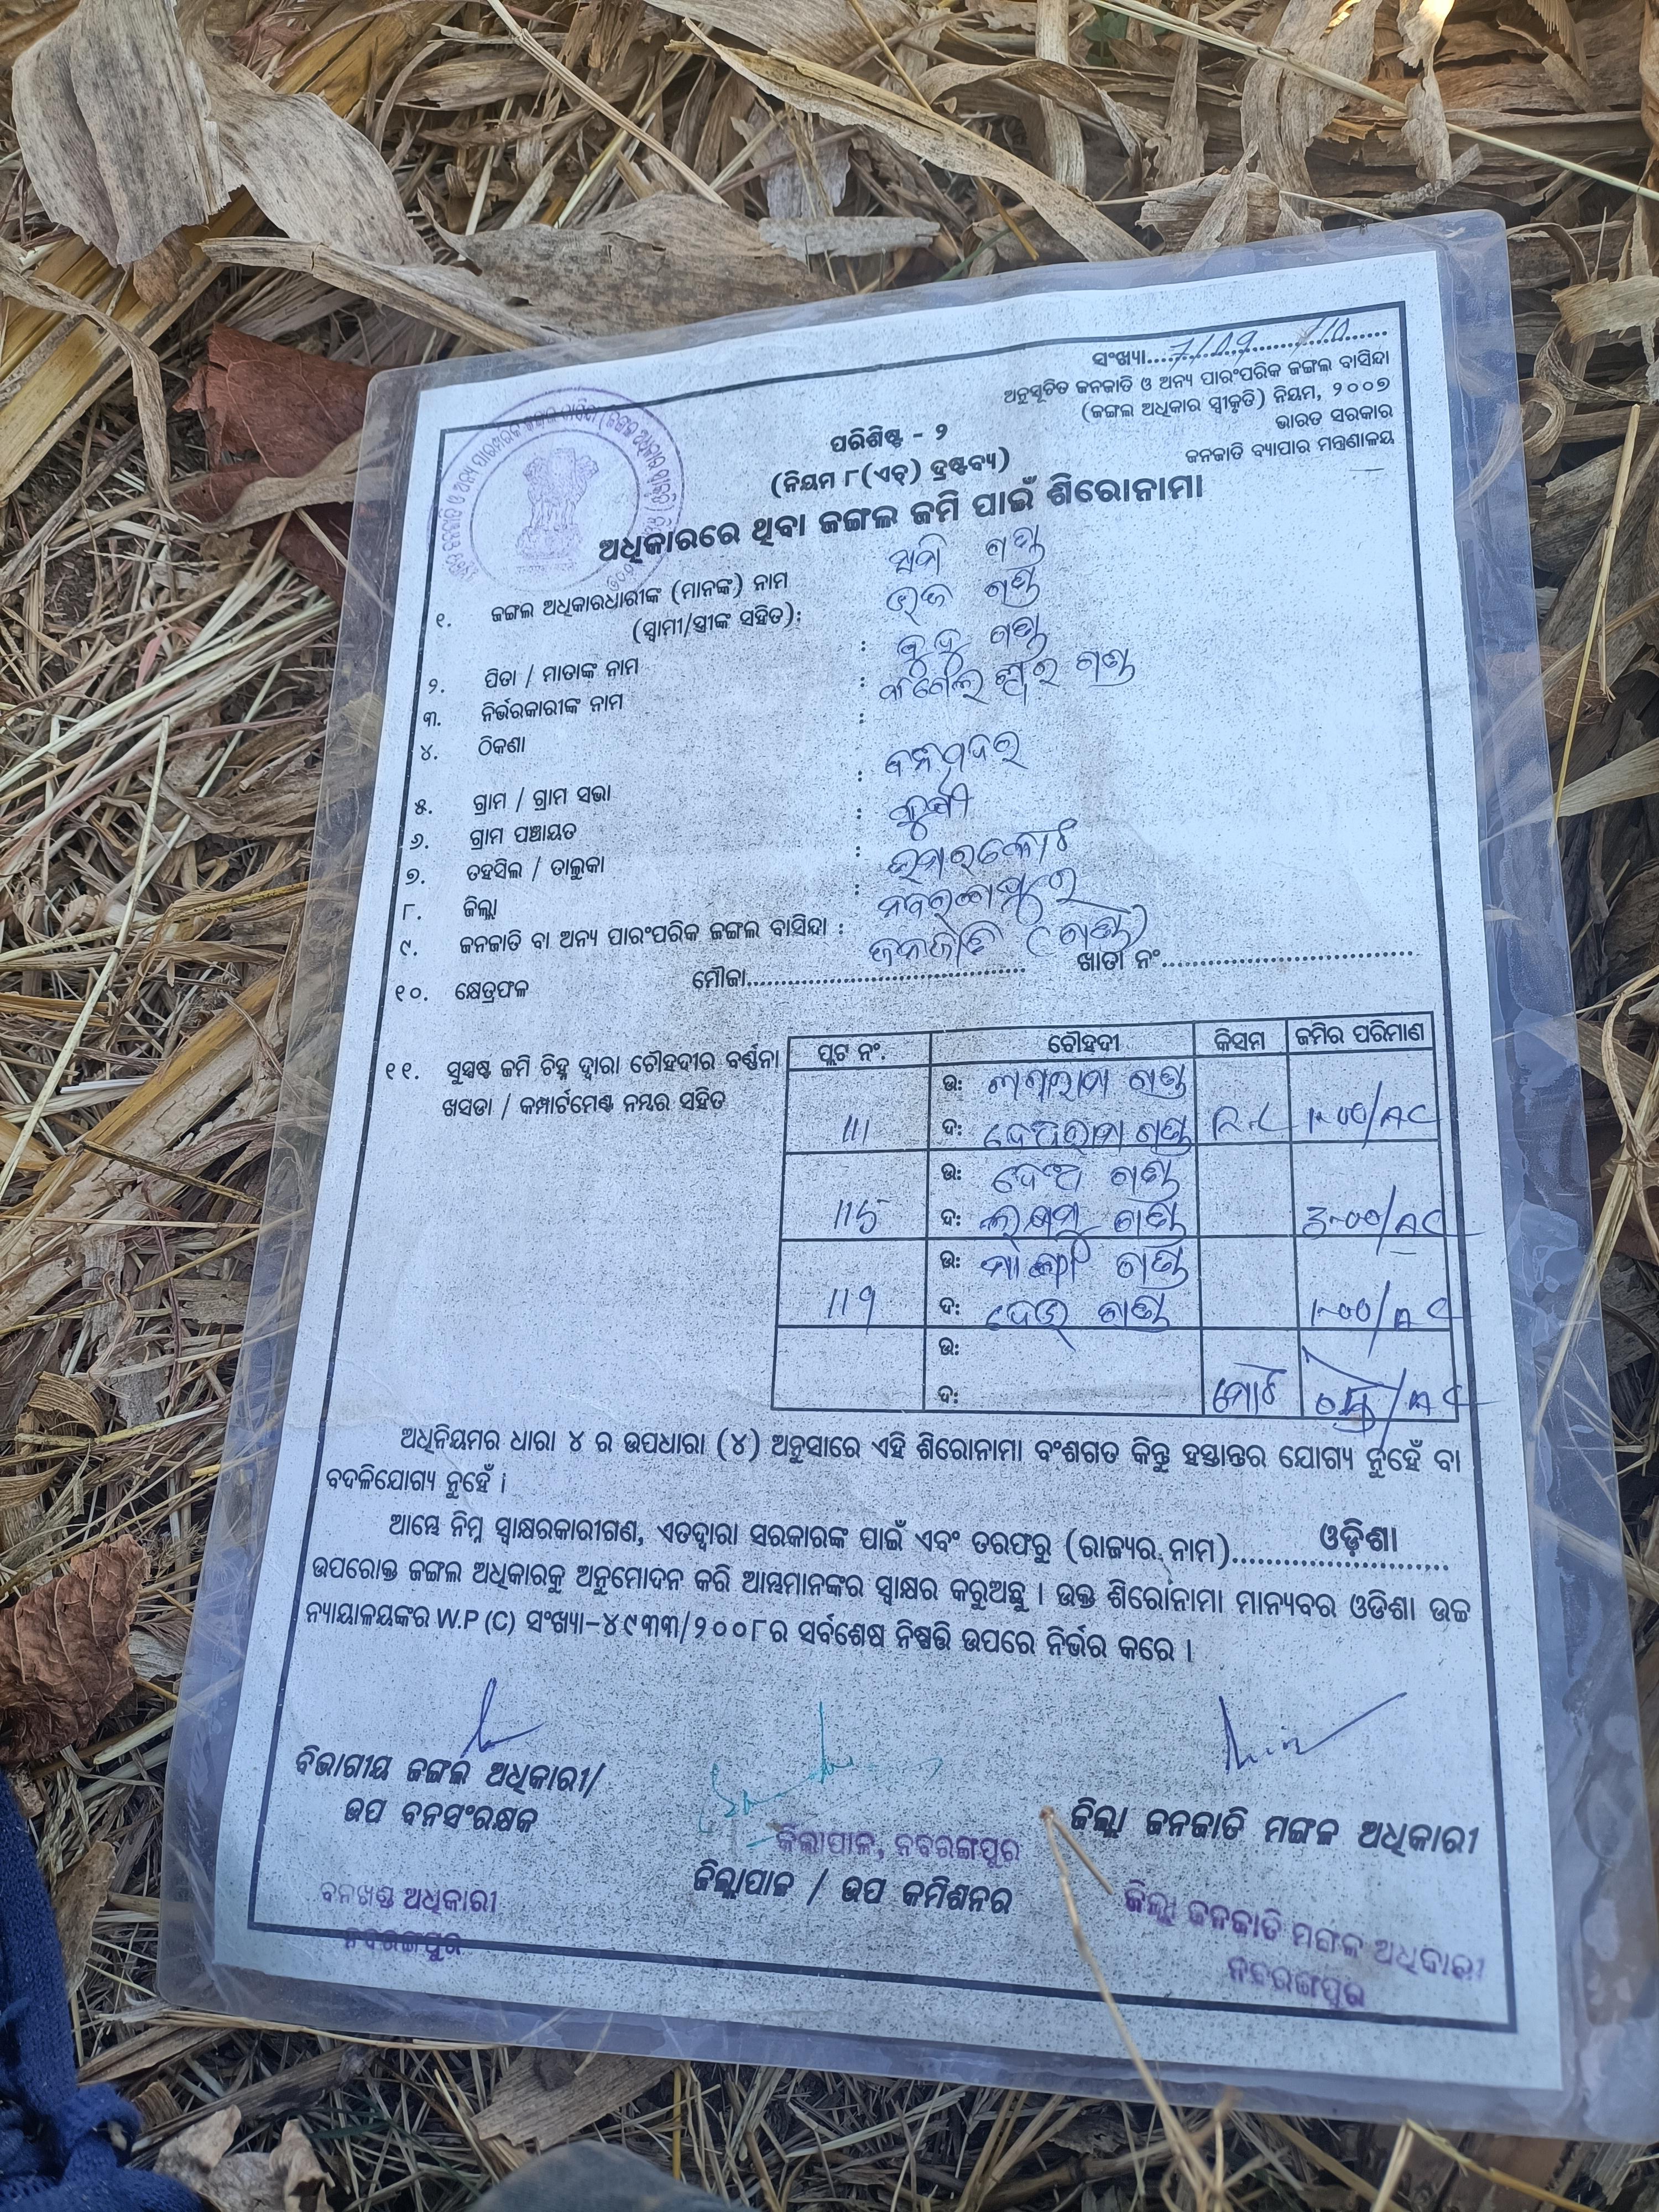 ସଂଖ୍ୟା....7/09.../10......
ଅନୁସୂଚିତ ଜନଜାତି ଓ ଅନ୍ୟ ପାରଂପରିକ ଜଙ୍ଗଲ ବାସିନ୍ଦା
(ଜଙ୍ଗଲ ଅଧିକାର ସ୍ୱୀକୃତି) ନିୟମ, ୨୦୦୭
ଭାରତ ସରକାର
ଜନଜାତି ବ୍ୟାପାର ମନ୍ତ୍ରଣାଳୟ
ପରିଶିଷ୍ଟ - ୨
(ନିୟମ ୮(ଏଚ୍) ଦ୍ରଷ୍ଟବ୍ୟ)
ଅଧିକାରରେ ଥିବା ଜଙ୍ଗଲ ଜମି ପାଇଁ ଶିରୋନାମା
୧. ଜଙ୍ଗଲ ଅଧିକାରଧାରୀଙ୍କ (ମାନଙ୍କ) ନାମ ଗଣ୍ଡ
(ସ୍ୱାମୀ/ସ୍ତ୍ରୀଙ୍କ ସହିତ): ଗଣ୍ଡ
୨. ପିତା / ମାତାଙ୍କ ନାମ : ବୁଦୁ ଗଣ୍ଡ
୩. ନିର୍ଭରକାରୀଙ୍କ ନାମ : ଗଣ୍ଡ
୪. ଠିକଣା :
୫. ଗ୍ରାମ / ଗ୍ରାମ ସଭା :
୬. ଗ୍ରାମ ପଞ୍ଚାୟତ :
୭. ତହସିଲ / ତାଲୁକା : ଉମରକୋଟ
୮. ଜିଲ୍ଲା : ନବରଙ୍ଗପୁର
୯. ଜନଜାତି ବା ଅନ୍ୟ ପାରଂପରିକ ଜଙ୍ଗଲ ବାସିନ୍ଦା : ଜନଜାତି (ଗଣ୍ଡ)
୧୦. କ୍ଷେତ୍ରଫଳ ମୌଜା.............................. ଖାତା ନଂ..............................
୧୧. ସୁସ୍ପଷ୍ଟ ଜମି ଚିହ୍ନ ଦ୍ୱାରା ଚୌହଦୀର ବର୍ଣ୍ଣନା
ଖସଡା / କମ୍ପାର୍ଟମେଣ୍ଟ ନମ୍ବର ସହିତ
ପ୍ଲଟ ନଂ. ଚୌହଦୀ କିସମ ଜମିର ପରିମାଣ
ଉ: ଗଣ୍ଡ
111 ଦ: ଗଣ୍ଡ 1-00/AC
ଉ: ଗଣ୍ଡ
115 ଦ: ଗଣ୍ଡ 3-00/AC
ଉ: ଗଣ୍ଡ
119 ଦ: ଗଣ୍ଡ 1-00/AC
ଉ:
ଦ: ମୋଟ /AC
ଅଧିନିୟମର ଧାରା ୪ ର ଉପଧାରା (୪) ଅନୁସାରେ ଏହି ଶିରୋନାମା ବଂଶଗତ କିନ୍ତୁ ହସ୍ତାନ୍ତର ଯୋଗ୍ୟ ନୁହେଁ ବା
ବଦଳିଯୋଗ୍ୟ ନୁହେଁ ।
ଆମ୍ଭେ ନିମ୍ନ ସ୍ୱାକ୍ଷରକାରୀଗଣ, ଏତଦ୍ୱାରା ସରକାରଙ୍କ ପାଇଁ ଏବଂ ତରଫରୁ (ରାଜ୍ୟର ନାମ)........ଓଡ଼ିଶା........
ଉପରୋକ୍ତ ଜଙ୍ଗଲ ଅଧିକାରକୁ ଅନୁମୋଦନ କରି ଆମ୍ଭମାନଙ୍କର ସ୍ୱାକ୍ଷର କରୁଅଛୁ । ଉକ୍ତ ଶିରୋନାମା ମାନ୍ୟବର ଓଡିଶା ଉଚ୍ଚ
ନ୍ୟାୟାଳୟଙ୍କର W.P (C) ସଂଖ୍ୟା-୪୯୩୩/୨୦୦୮ର ସର୍ବଶେଷ ନିଷ୍ପତ୍ତି ଉପରେ ନିର୍ଭର କରେ ।
ବିଭାଗୀୟ ଜଙ୍ଗଲ ଅଧିକାରୀ/
ଉପ ବନସଂରକ୍ଷକ
ବନଖଣ୍ଡ ଅଧିକାରୀ
ନବରଙ୍ଗପୁର
ଜିଲ୍ଲାପାଳ, ନବରଙ୍ଗପୁର
ଜିଲ୍ଲାପାଳ / ଉପ କମିଶନର
ଜିଲ୍ଲା ଜନଜାତି ମଙ୍ଗଳ ଅଧିକାରୀ
ଜିଲ୍ଲା ଜନଜାତି ମଙ୍ଗଳ ଅଧିକାରୀ
ନବରଙ୍ଗପୁର